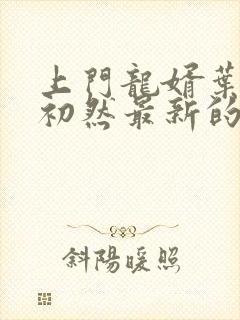 上門龍婿葉
初然最新的
斜陽暖照